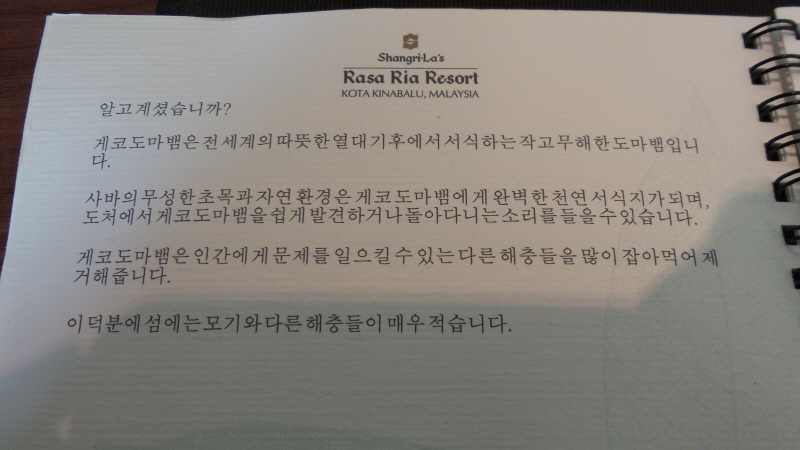 Shangri-La's
Rasa Ria Resort
KOTA KINABALU, MALAYSIA
알고계셨습니까?
게코도마뱀은 전세계의 따뜻한 열대기후에서 서식하는 작고 무해한 도마뱀입니
다.
사바의 무성한 초목과 자연환경은 게코도마뱀에게 완벽한 천연 서식지가 되며,
도처에서 게코도마뱀을 쉽게 발견하거나 돌아다니는 소리를 들을 수 있습니다.
게코도마뱀은 인간에게 문제를 일으킬 수 있는 다른 해충들을 많이 잡아먹어 제
거해줍니다.
이덕분에 섬에는 모기와 다른 해충들이 매우 적습니다.